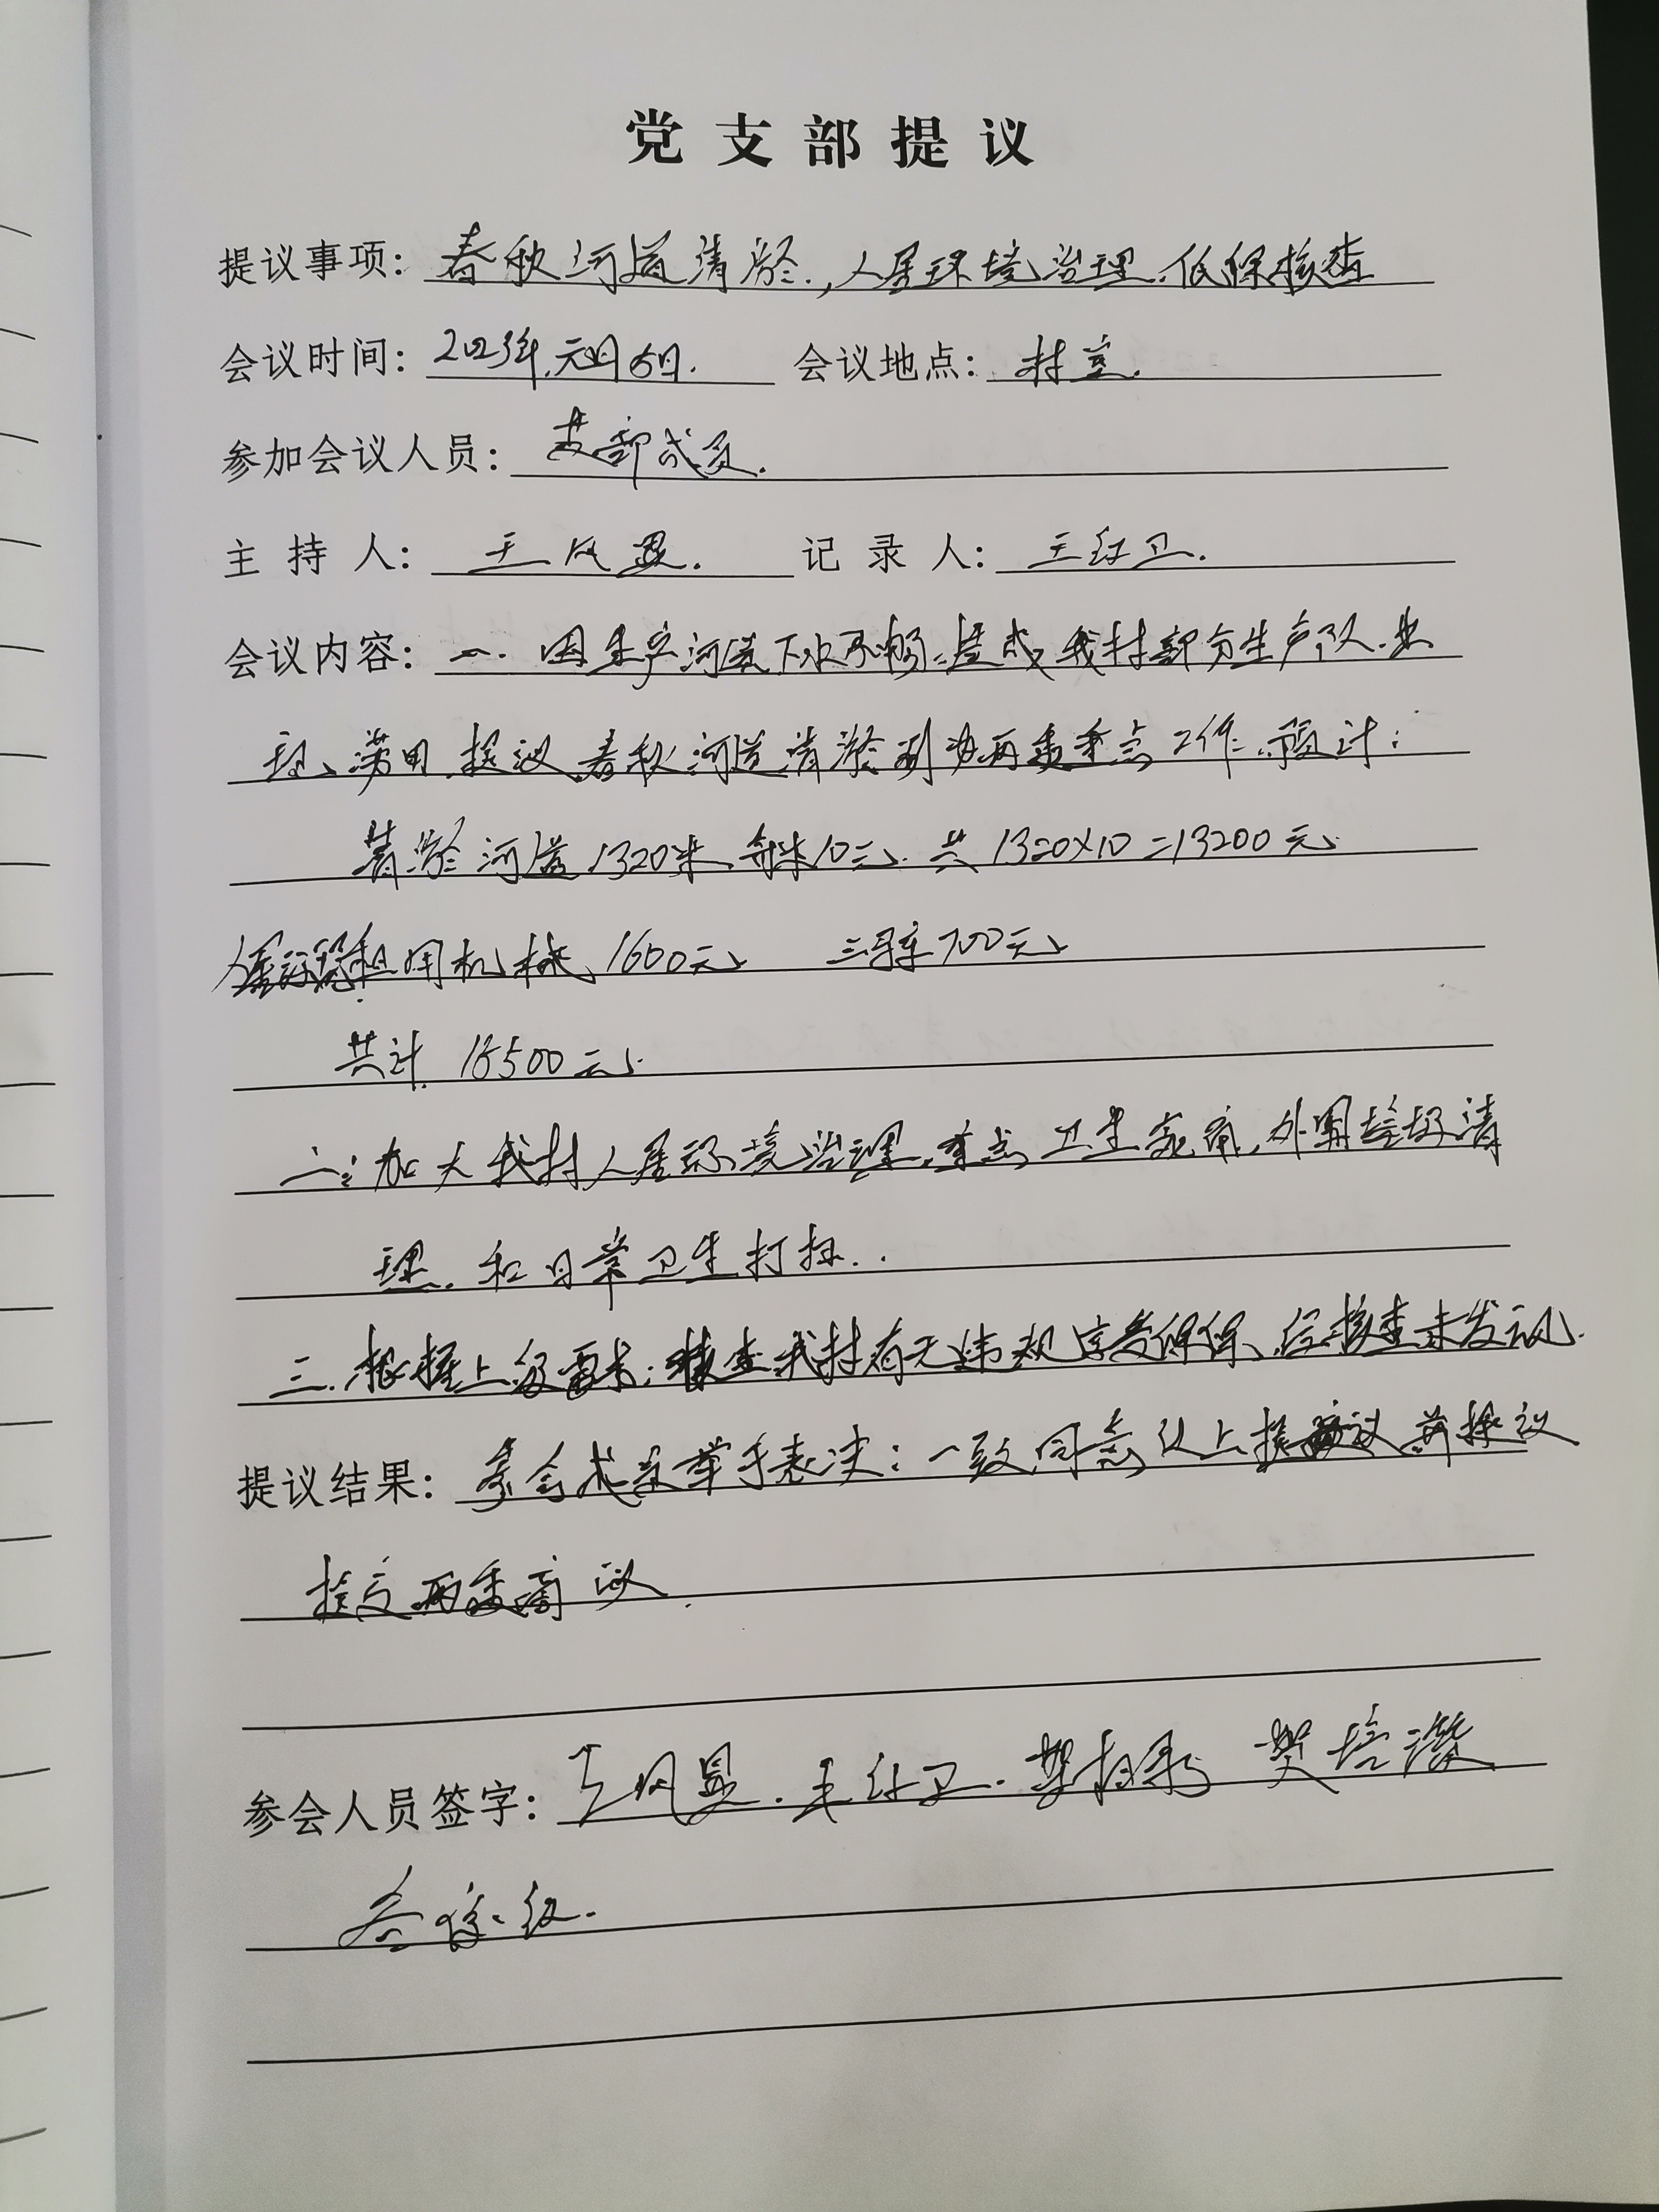 党支部提议
提议事项：春秋河道清淤，人居环境治理、低保核查
会议时间：2023年元月6日. 会议地点：村室.
参加会议人员：支部成员.
主持人：王凤显. 记录人：王红卫.
会议内容：一. 因生产河道下水不畅，造成我村部分生产队，出
现涝田，提议春秋河道清淤列为两委重点工作，预计：
清淤河道1320米，每米10元，共1320×10=13200元
人居环境租用机械，1600元 三马车700元
共计 15500元.
二：加大我村人居环境治理，重点卫生死角，外围垃圾清
理，和日常卫生打扫..
三. 根据上级要求：核查我村有无违规享受低保，经核查未发现.
提议结果：参会成员举手表决：一致同意以上提议，并提议
提交两委商议
参会人员签字：王凤显. 王红卫. 樊培潜